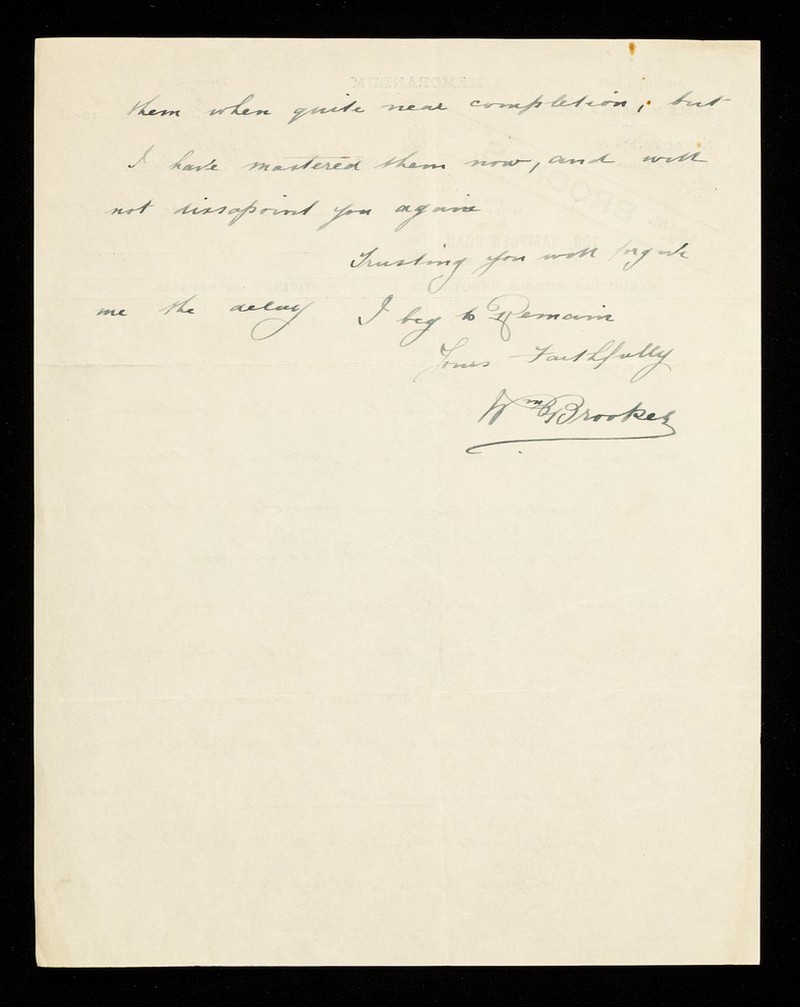 them when quite near completion, but
I have mastered them now, and will
not dissapoint you again
Trusting you will forgive
me the delay I beg to Remain
Yours Faithfully
Wm Brookes